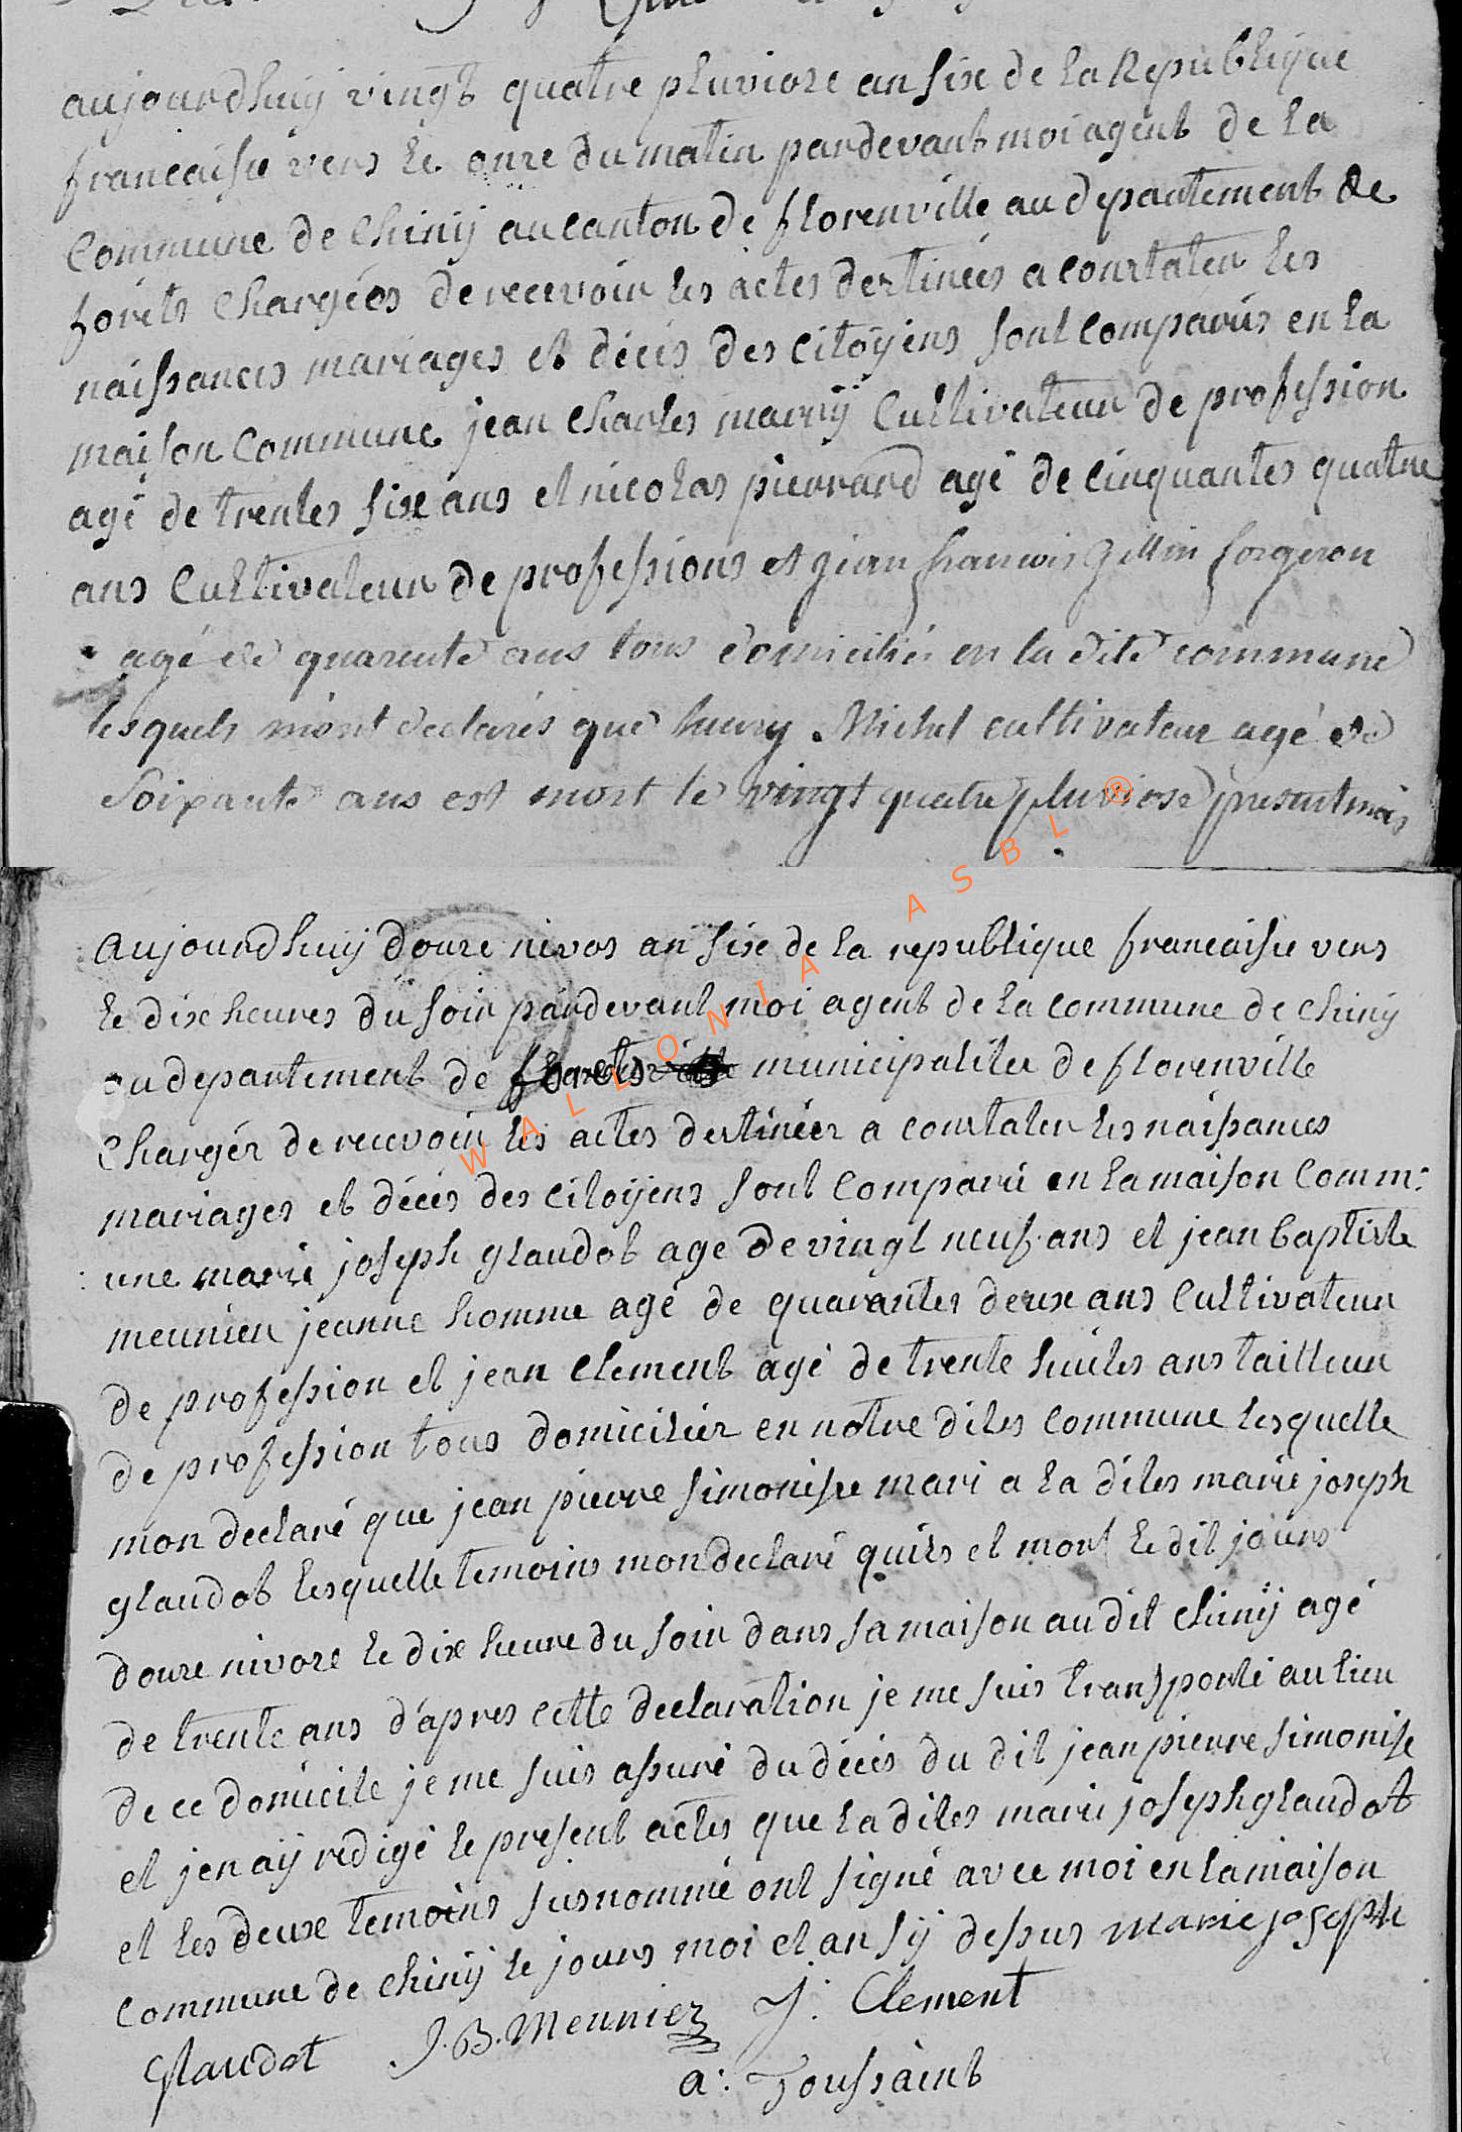 aujourdhuij vingt quatre pluviose an sixe de la Republique
francaisse vers le onze du matin pardevant moi agent de la
Commune de Chinij au canton de florenville au depantement de
foréts Chargées de recevoir les actes destinées a constater les
naissances mariages et décés des citoÿens sont comparus en la
maison Commune jean Charles marrij Cultivateur de profession
agé de trentes sixe ans et nicolas pierrard agé de cinquantes quatre
ans Cultivateur de professions et jean francois Gillin forgeron
agé de quarente ans tous domiciliés en la dite commune
lesquels m'ont declarés que henry Michel cultivateur agé de
soixante ans est mort le vingt quatre pluviose present mois
WALLONIA ASBL ®
aujourdhuij douze nivos an sixe de la republique francaisse vers
le dixe heures du soir pardevant moi agent de la commune de chinij
au depantement de forets municipalitée de florenville
Chargér de recevoir les actes destinéer a constater les naissances
mariages et décés des citoijens sont comparu en la maison Comm:
: une marie joseph glaudot age de vingt neuf ans et jean baptiste
meunier jeanne homme agé de quarantes deuxe ans Cultivateur
de profession et jean Clement agé de trente huites ans tailleur
de profession tous domiciliér en notre dites Commune lesquelle
mon declaré que jean pierre simonisse mari a la dites marie joseph
glaudot lesquelle temoins mon declaré quils et mort le dit jours
douze nivoze le dixe heure du soir dans sa maison au dit Chinij agé
de trente ans d'apres cette declaration je me suis transporté au lieu
de ce domicile je me suis assuré du décés du dit jean pierre simonise
et jen aij rédigé le present actes que la dites marie joseph glaudot
et les deuxe temoins susnommé ont signé avec moi en la maison
commune de Chinij le jours moi et an sij dessus marie joseph
glaudot J.B. Meunier J: Clement
a: Toussaint